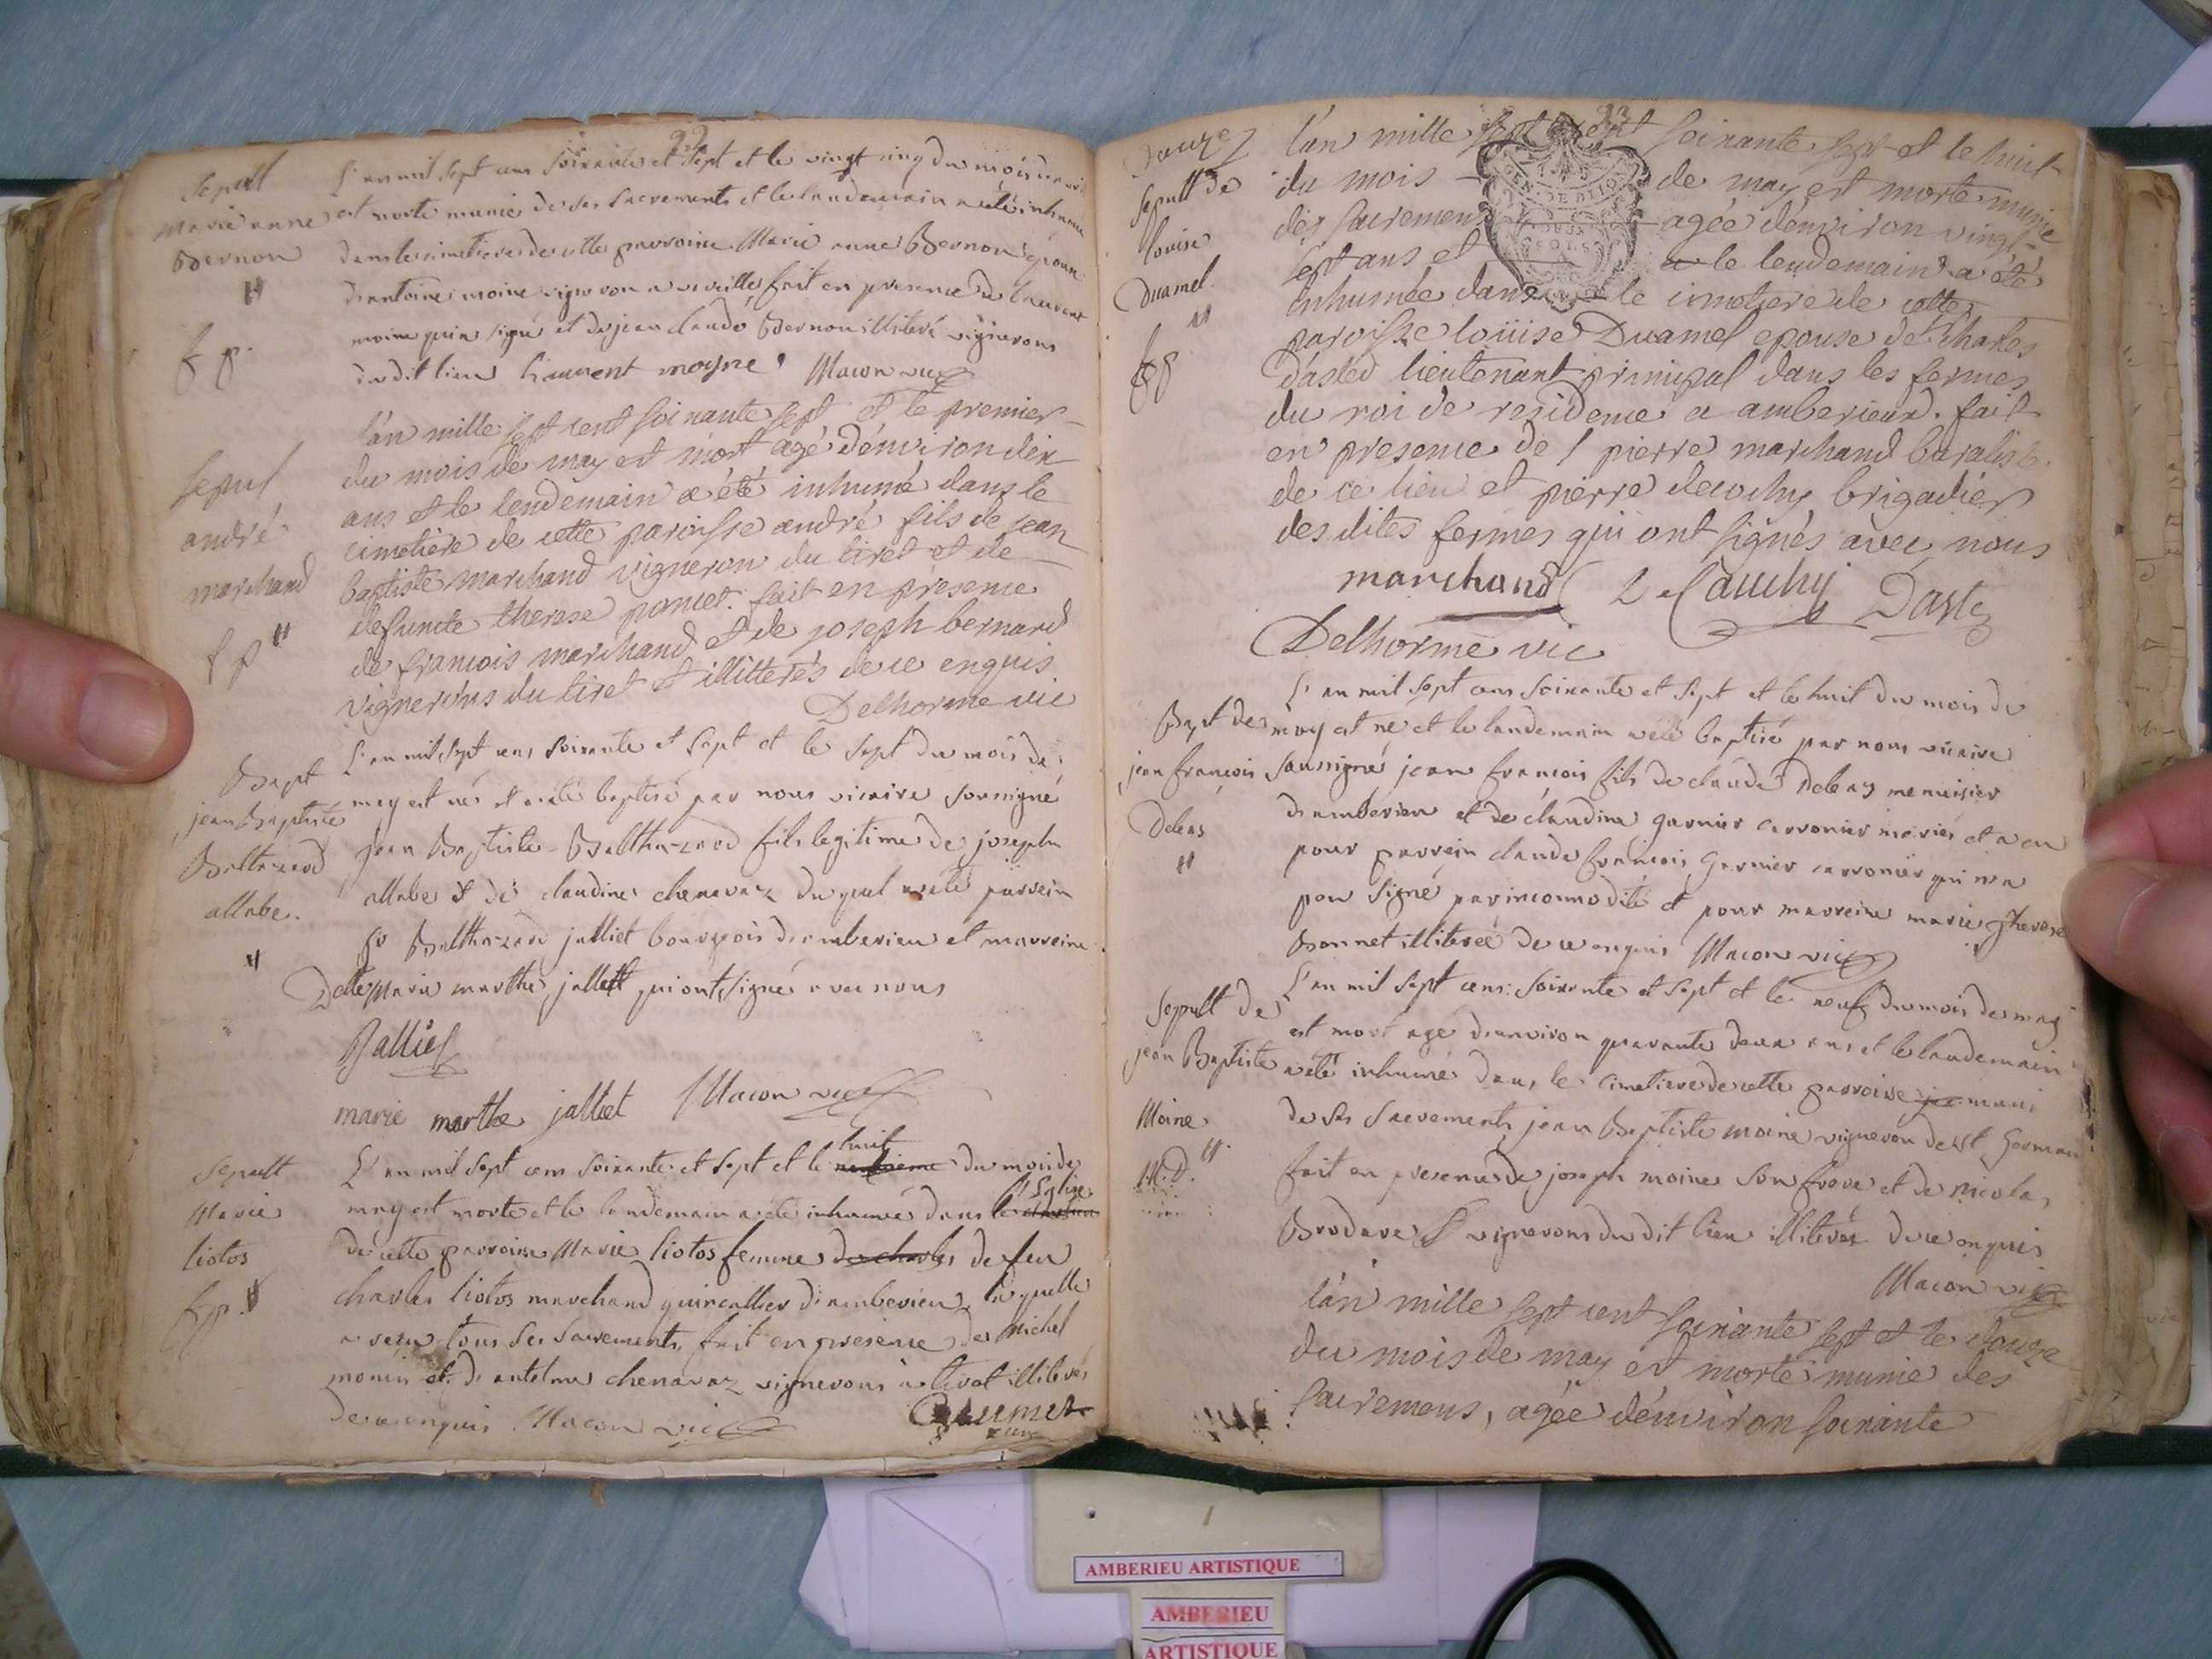 22
Sepult
marie anne
Bernon
f p.
L'an mil sept cens soixante et sept et le vingt cinq du mois
est morte munie de ses sacrements et le landemain a été inhumée
dans le cimetiere de cette parroisse Marie anne Bernon epouse
d'antoine moine vigneron fait en presence de laurent
moine qui a signé et de jean claude Bernon illiteré vignerons
du dit lieu Laurent moyne Macon vic
Sepul
andré
marchand
f p
l'an mille sept cent soixante sept et le premier
du mois de may est mort agé d'environ dix
ans et le lendemain a été inhumé dans le
cimetière de cette paroisse andré fils de jean
baptiste marchand vigneron du tiret et de
defuncte therese poncet. fait en presence
de francois marchand et de joseph bernard
vignerons du tiret et illitterés de ce enquis
Delhorme vic
Bapt
jean Baptiste
Balthazard
allabe.
L'an mil sept cens soixante et sept et le sept du mois de
may est né et a été baptisé par nous vicaire soussigné
jean Baptiste Balthazard fils legitime de joseph
allabe et de claudine chenavaz du quel a été parrein
sr Balthazard jalliet bourgeois d'amberieu et marreine
Delle Marie marthe jalliet qui ont signé avec nous
Jalliet
marie marthe jalliet Macon vic
Sepult
Marie
liotos
f p.
L'an mil sept cens soixante et sept et le neuvieme huit du mois de
may est morte et le landemain a été inhumé dans le cimetiere l'Eglise
de cette parroisse Marie liotos femme de charles de feu
charles liotos marchand quincallier d'amberieu, laquelle
a reçu tous ses sacrements, fait en presence de Michel
monin et d'antelme chenavaz vignerons a tiret illiterés
de ce enquis Macon vic
23
douze
Sepult de
louise
Duamel.
l'an mille sept cent soixante sept et le huit
du mois de may est morte munie
des sacremens agée d'environ vingt
sept ans et a le lendemain a été
inhumée dans le cimetiere de cette
paroisse loüise Duamel epouse de Charles
D'asted lieutenant principal dans les fermes
du roi de residence a amberieux. fait
en presence de s pierre marchand buraliste
de ce lieu et pierre brigadier
des dites fermes qui ont signés avec nous
marchand Le Cauchy Daste
Delhorme vic
Bapt de
jean françois
Debas
L'an mil sept cens soixante et sept et le huit du mois de
may est né et le landemain a été baptisé par nous vicaire
soussigné jean francois fils de claude Debas menuisier
d'amberieu et de claudine garnier carronier mariés et a eu
pour parrein claude françois Garnier carronier qui n'a
pou signé par incommodité et pour marreine marie Therese
Bonnet illiterée de ce enquis Macon vic
Sepult de
jean Baptiste
Moine
M.D.
L'an mil sept cens: soixante et sept et le neuf du mois de may
est mort agé d'environ quarante deux ans et le landemain
a été inhumé dans le cimetiere de cette parroise muni
de ses sacrements jean Baptiste moine vigneron de st German
fait en presence de joseph moine son frere et de nicolas
vignerons du dit lieu illiterés de ce enquis
Macon vic
l'an mille sept cent soixante sept et le douze
du mois de may est morte munie des
sacremens, agée d'environ soixante
AMBERIEU ARTISTIQUE
AMBERIEU
ARTISTIQUE